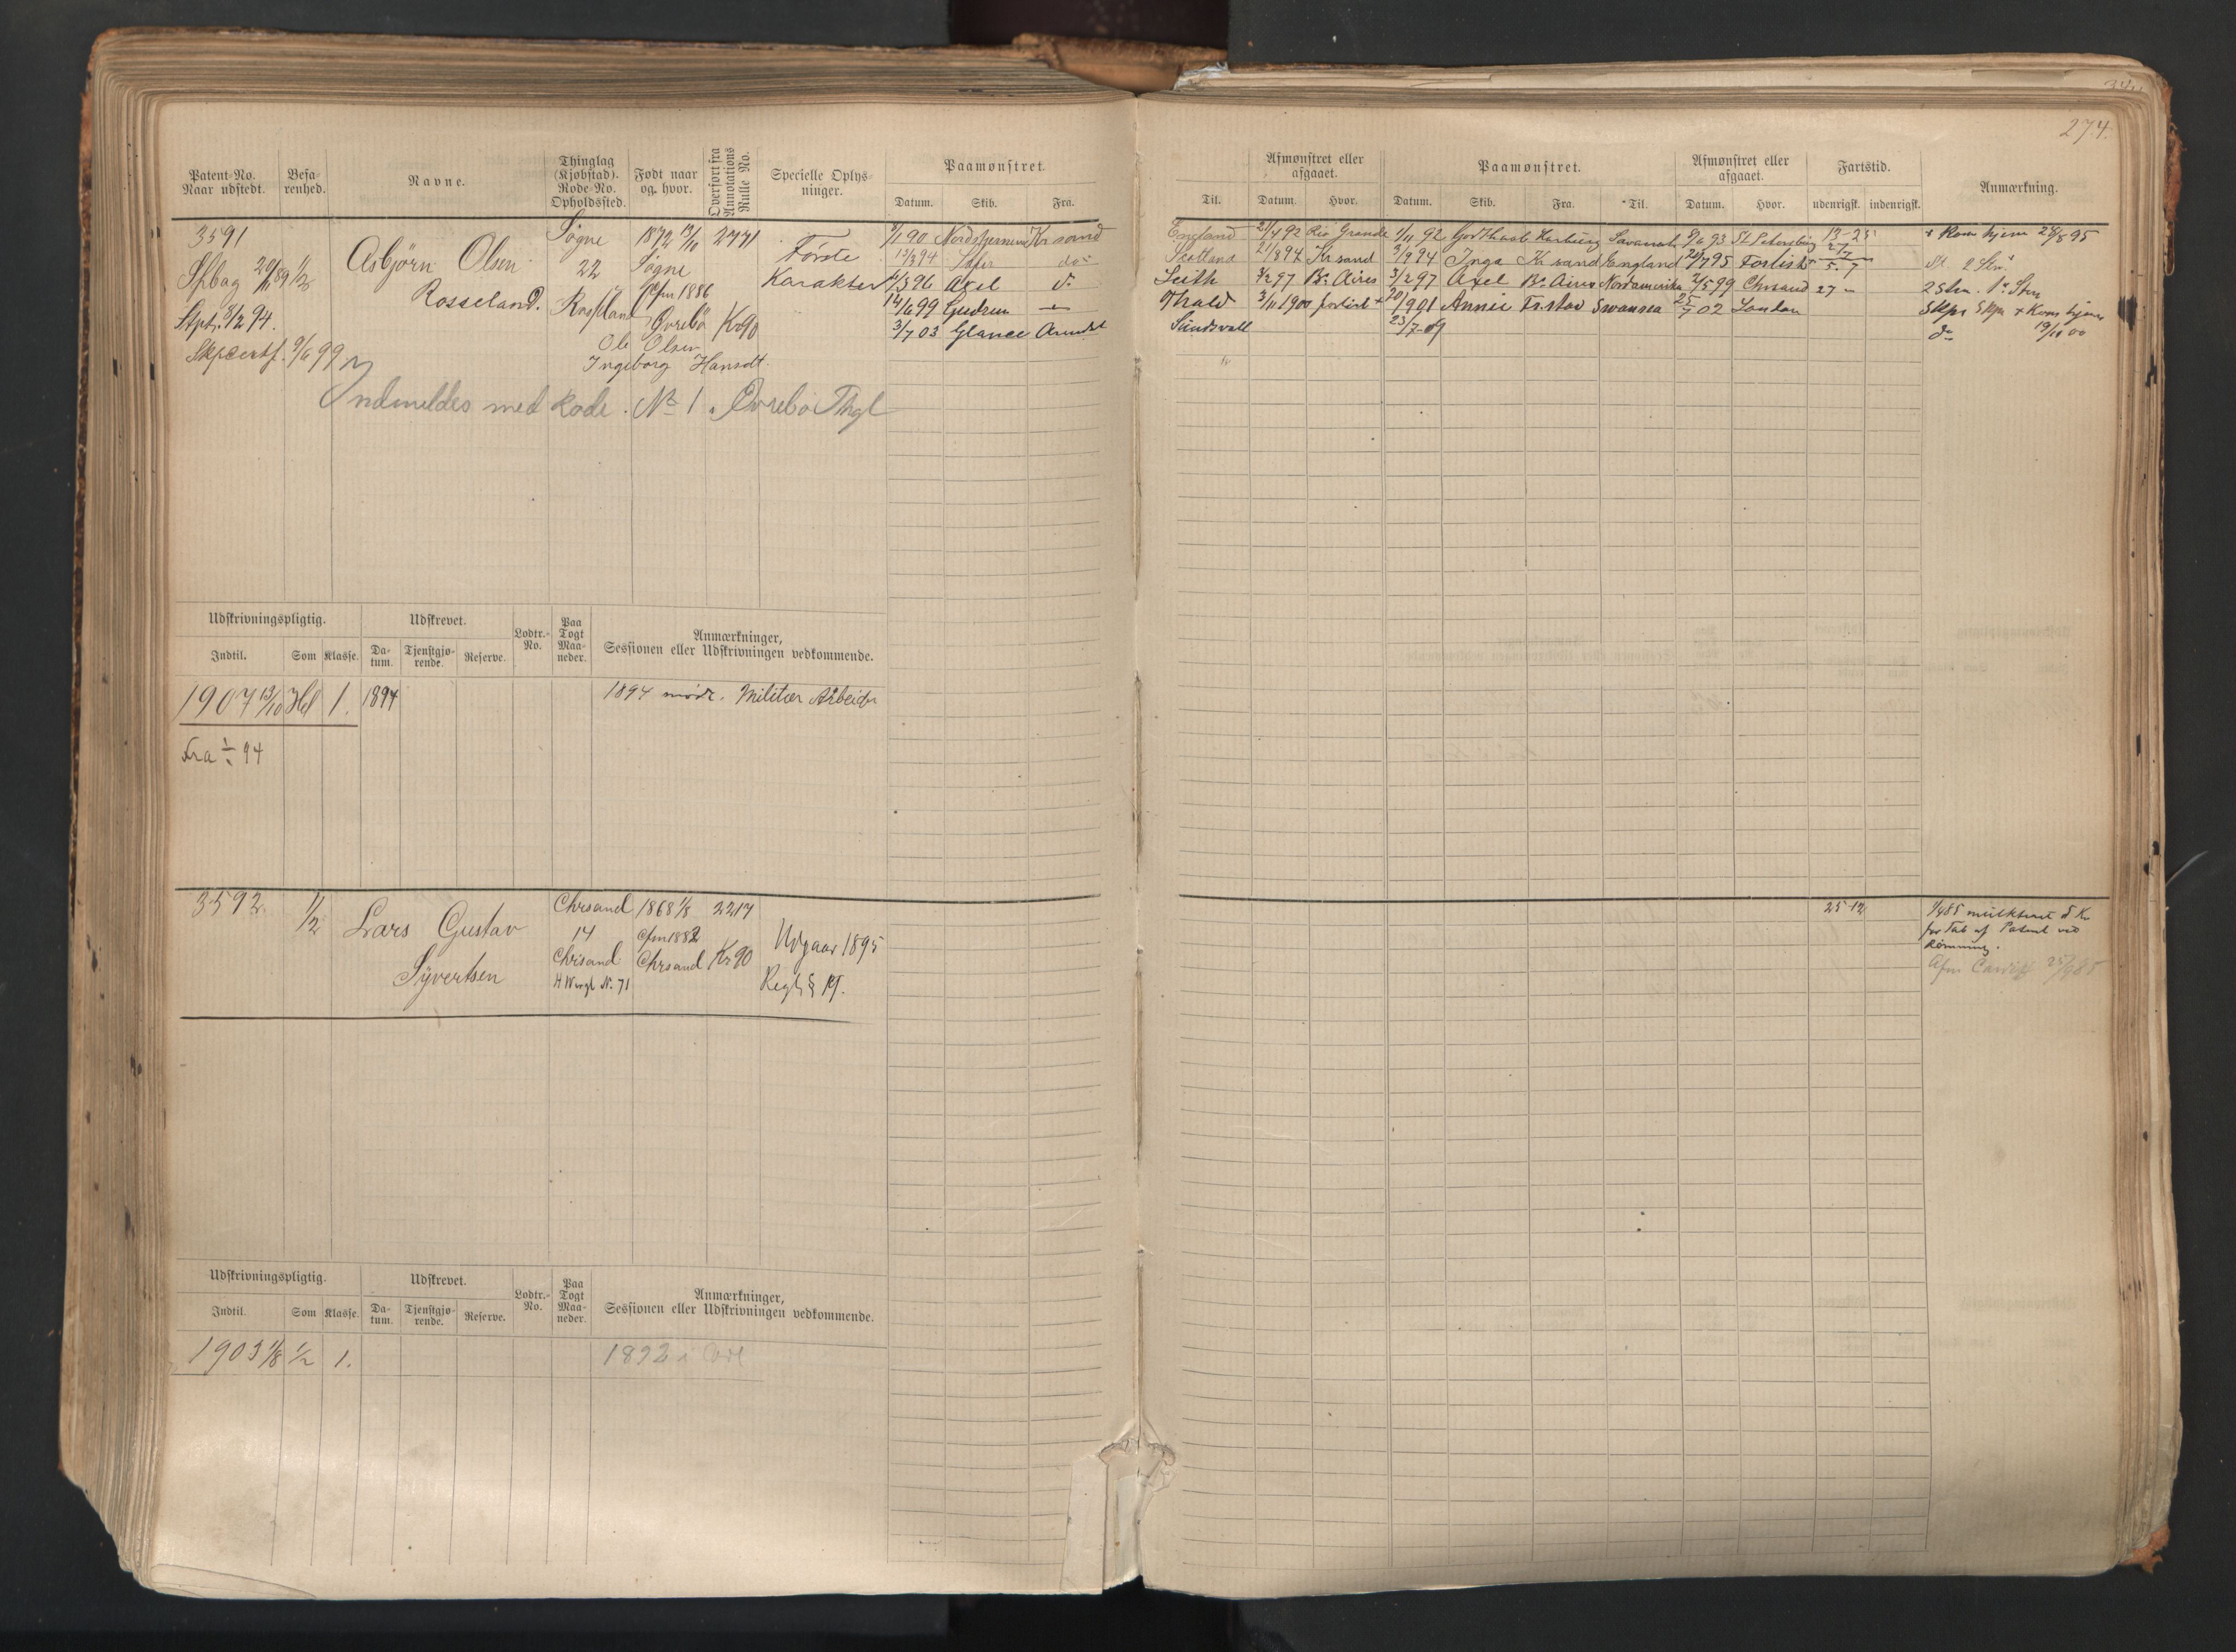 274.
Patent-No. Naar udstedt.
Befarenhed.
Navne.
Thinglag (Kjøbstad). Rode-No. Opholdssted.
Født naar og hvor.
Overført fra Annotations Rulle No.
Specielle Oplysninger.
Paamønstret.
Datum. Skib. Fra.
3591
Asbjørn Olsen
Rosseland.
Søgne
22
Rossland
1872 13/10
Søgne
Cfm 1886
Øvrebø
2771
Kr 90
Ole Olsen
Ingeborg Hansdt.
Første
Karakter
Sfbag 29/11 89 1/2
Stpt. 8/2 94.
Skpcertf. 9/6 99
1/1 90 Nordstjernen Kr sand
13/3 94 Sofie do
1/3 96 Axel do
14/6 99 Gudrun —
3/7 03 Glance Arendal
Indmeldes med Rode No 1 i Øvrebø Thgl
Udskrivningspligtig.
Udskrevet.
Lodtr.-No.
Paa Togt Maaneder.
Anmærkninger, Sessionen eller Udskrivningen vedkommende.
Indtil. Som Klasse. Datum. Tjenstgjørende. Reserve.
1907 13/10 Hel 1. 1894
1894 mødt. Militær Arbeider
Fra 1/1 94
3592.
1/2
Lars Gustav
Syvertsen
Chrsand
14
Chrisand
H Wergl N. 71
1868 1/8
Cfm 1882
Chrsand
2217
Kr 90
Udgaar 1895
Regl § 19.
Udskrivningspligtig.
Udskrevet.
Lodtr.-No.
Paa Togt Maaneder.
Anmærkninger, Sessionen eller Udskrivningen vedkommende.
Indtil. Som Klasse. Datum. Tjenstgjørende. Reserve.
1903 1/8 1/2 1.
1892 i
Afmønstret eller afgaaet.
Paamønstret.
Afmønstret eller afgaaet.
Fartstid.
Anmærkning.
Til. Datum. Hvor. Datum. Skib. Fra. Til. Datum. Hvor. udenrigsk. indenrigsk.
England 21/4 92 Rio Grande 1/11 92 Godthaab Harburg Savanah 9/6 93 St Petersburg 13-23 + Kom hjem 28/8 95
Scotland 21/8 94 Kr sand 3/9 94 Inga Kr sand England 20/7 95 Forlist + 5.7 2 Stm.
Leith 3/2 97 Bs Aires 3/2 97 Axel Bs Aires Nordamerika 2/5 99 Chrsand 27 — 2 Stm. 1e Stm
Thald 3/11 1900 forlist + 20/9 01 Annie Fr.stad Swansea 25/7 02 London Skpr Skpr + Kom hjem
Sundsvall 23/7-09 do 19/11 00
25-12
1/4 85 mulkteret 5 Kr
for Tab af Patent ved
Rømning.
Afm Cardiff 25/9 85